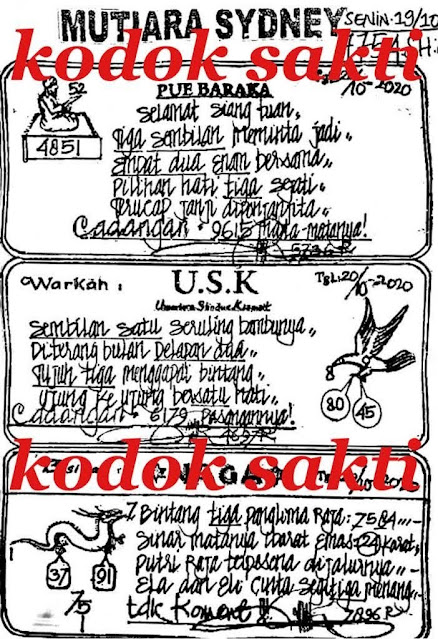 MUTIARA SYDNEY
SENIN·19/10
kodok sakti
PUE BARAKA
10-2020
52
4851
Selamat siang tuan,,
tiga sembilan meminta jadi,,
empat dua enam bersama,,
pilihan hati tiga sejati,,
terucap janji
Cadangan · 9615 mata-matanya!
Warkah :
U.S.K
Tgl: 20/10-2020
Sembilan satu seruling bambunya,,
Diterang bulan delapan dua,,
tujuh tiga menggapai bintang,,
ujung ke ujung bersatu hati,,
Cadangan · 6179 pasangannya!
80
45
kodok sakti
NAGA
37
91
75
7 Bintang tiga panglima Raja : 7584
Sinar matanya Emas 24 Karat,,
Putri Raja terpesona dijalurnya,,
Ela dan Eli cinta segitiga menang,,
tdk Koment !!
7896 R